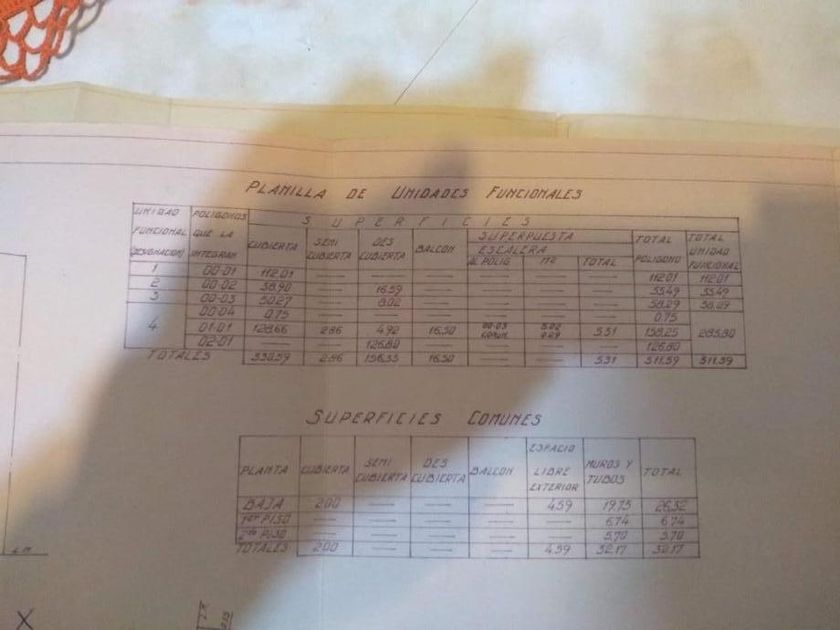 PLANILLA DE UNIDADES FUNCIONALES
UNIDAD FUNCIONAL (DESIGNACION) POLIGONOS QUE LA INTEGRAN SUPERFICIES
CUBIERTA SEMI CUBIERTA DES CUBIERTA BALCON SUPERPUESTA ESCALERA TOTAL POLIGONO TOTAL UNIDAD FUNCIONAL
AL POLIG M2 TOTAL
1 00-01 112.01 — — — — — — 112.01 112.01
2 00-02 38.90 — 16.59 — — — — 55.49 55.49
3 00-03 50.27 — 8.02 — — — — 58.29 58.29
00-04 0.75 — — — — — — 0.75
4 01-01 128.66 2.86 4.92 16.30 00-03 COMUN 5.02 0.29 5.31 158.25 285.80
02-01 — — 126.80 — — — — 126.80
TOTALES 2.86 5.31 511.59 511.59
SUPERFICIES COMUNES
PLANTA CUBIERTA SEMI CUBIERTA DES CUBIERTA BALCON ESPACIO LIBRE EXTERIOR MUROS Y TUBOS TOTAL
BAJA 2.00 — — — 4.59 19.73 26.32
1er PISO — — — — — 6.74 6.74
2do PISO — — — — — 5.70 5.70
TOTALES 2.00 — — — 4.59 32.17
X